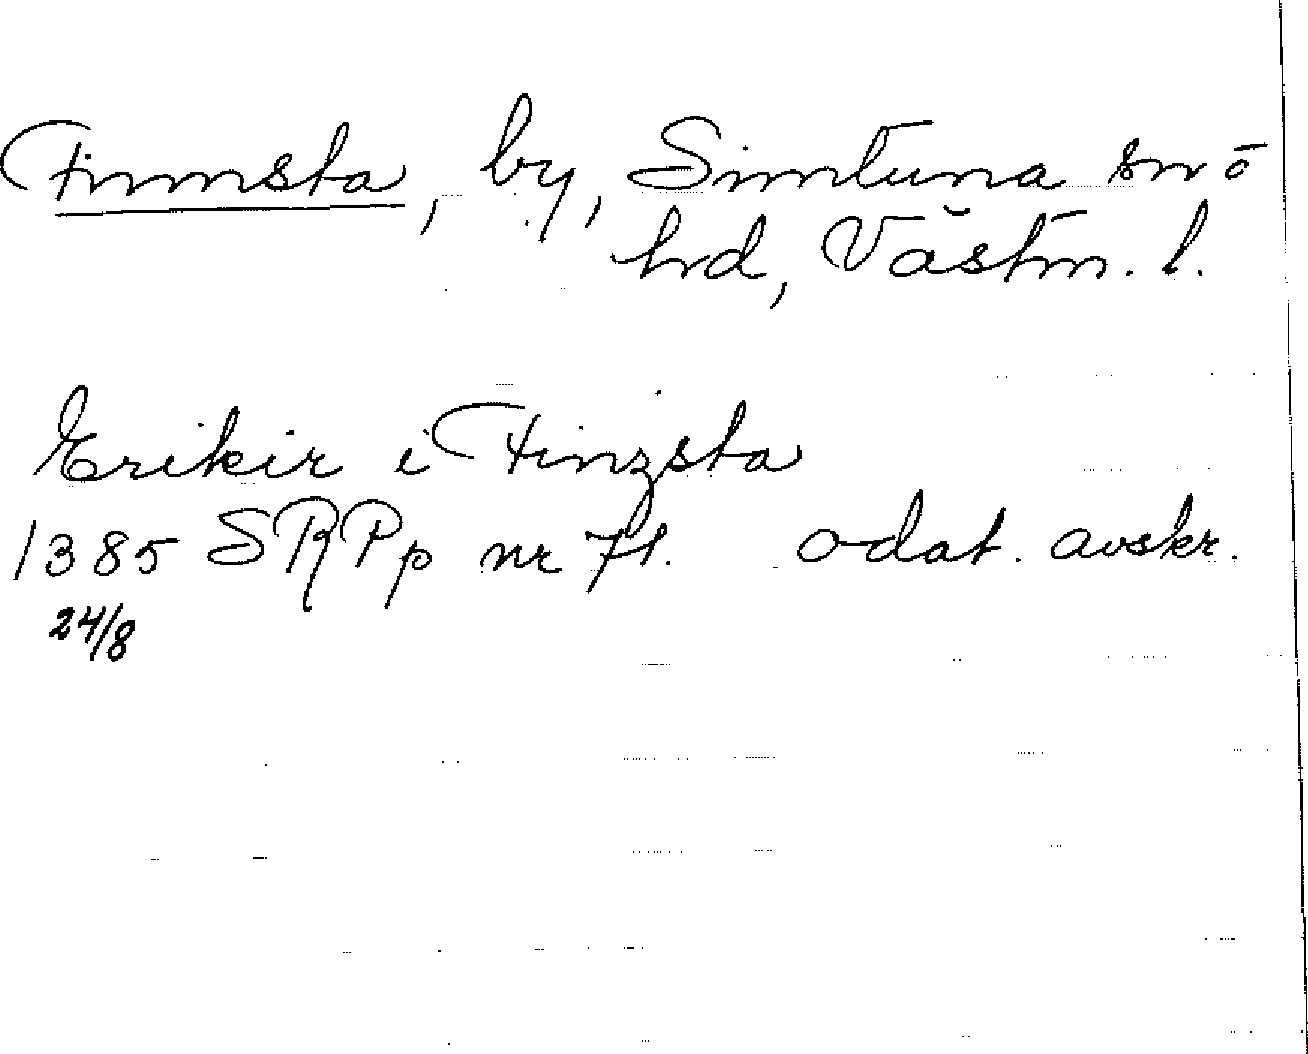 Finnsta, by, Simtuna sn o
hrd, Västm. l.
Erikir i Finzsta
1385 SRPp nr 71. odat. avskr.
24/8